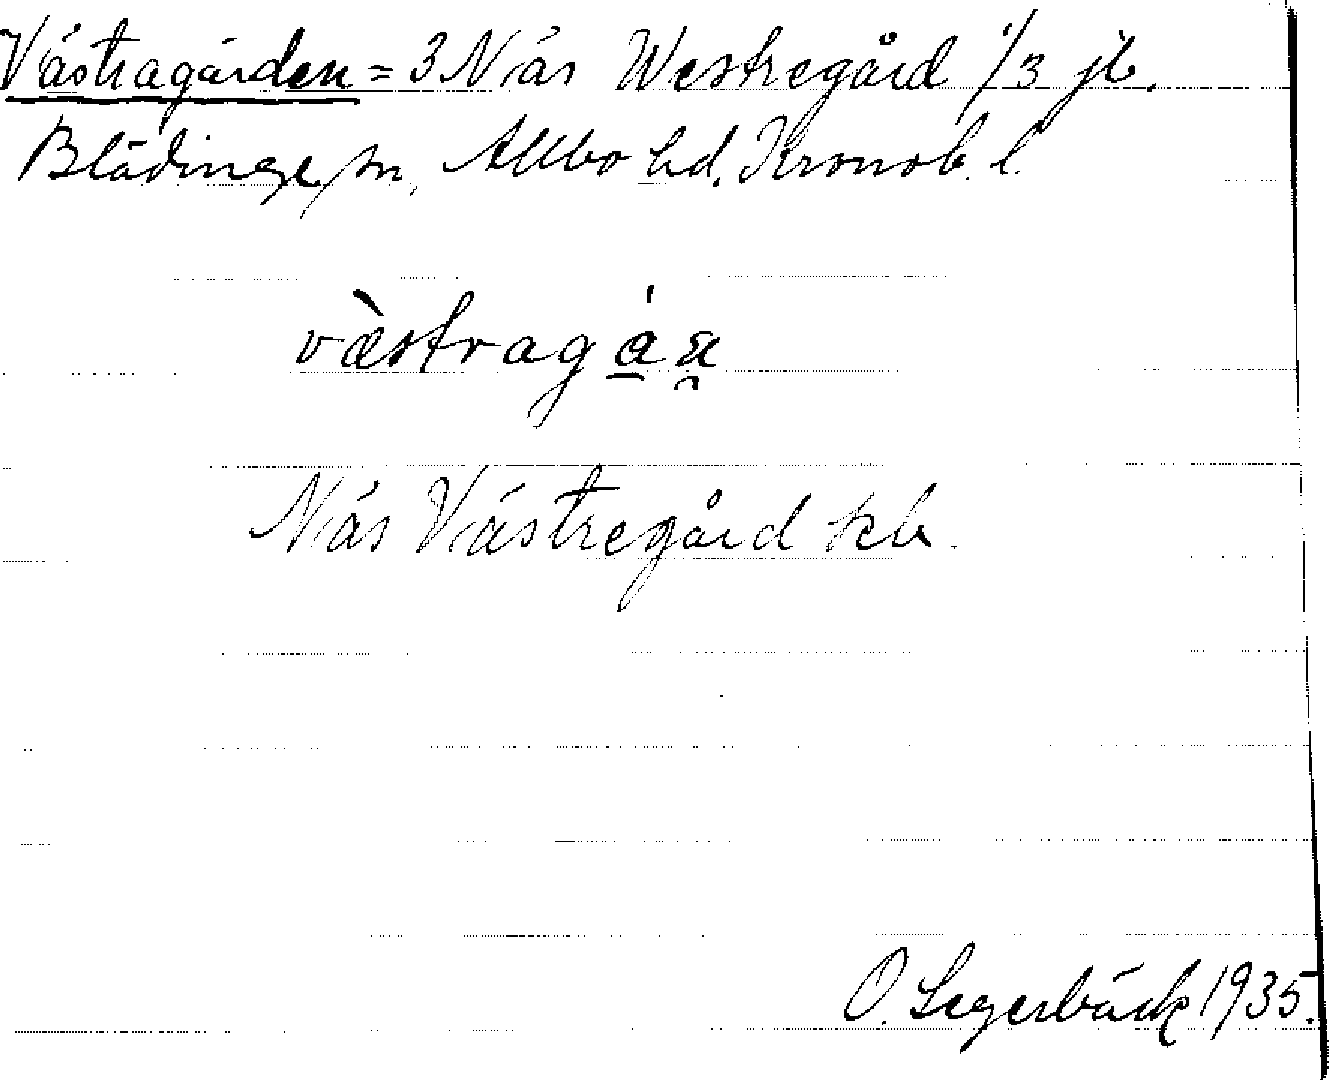 Västragården = 3 Näs Westregård 1/3 jb.
Blädinge sn, Allbo hd. Kronob. l.
Näs Västregård kb.
O. Segerbäck 1935.